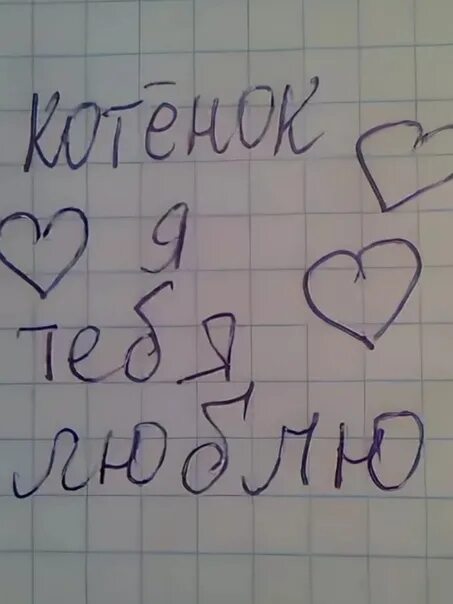 котёнок
я
тебя
люблю